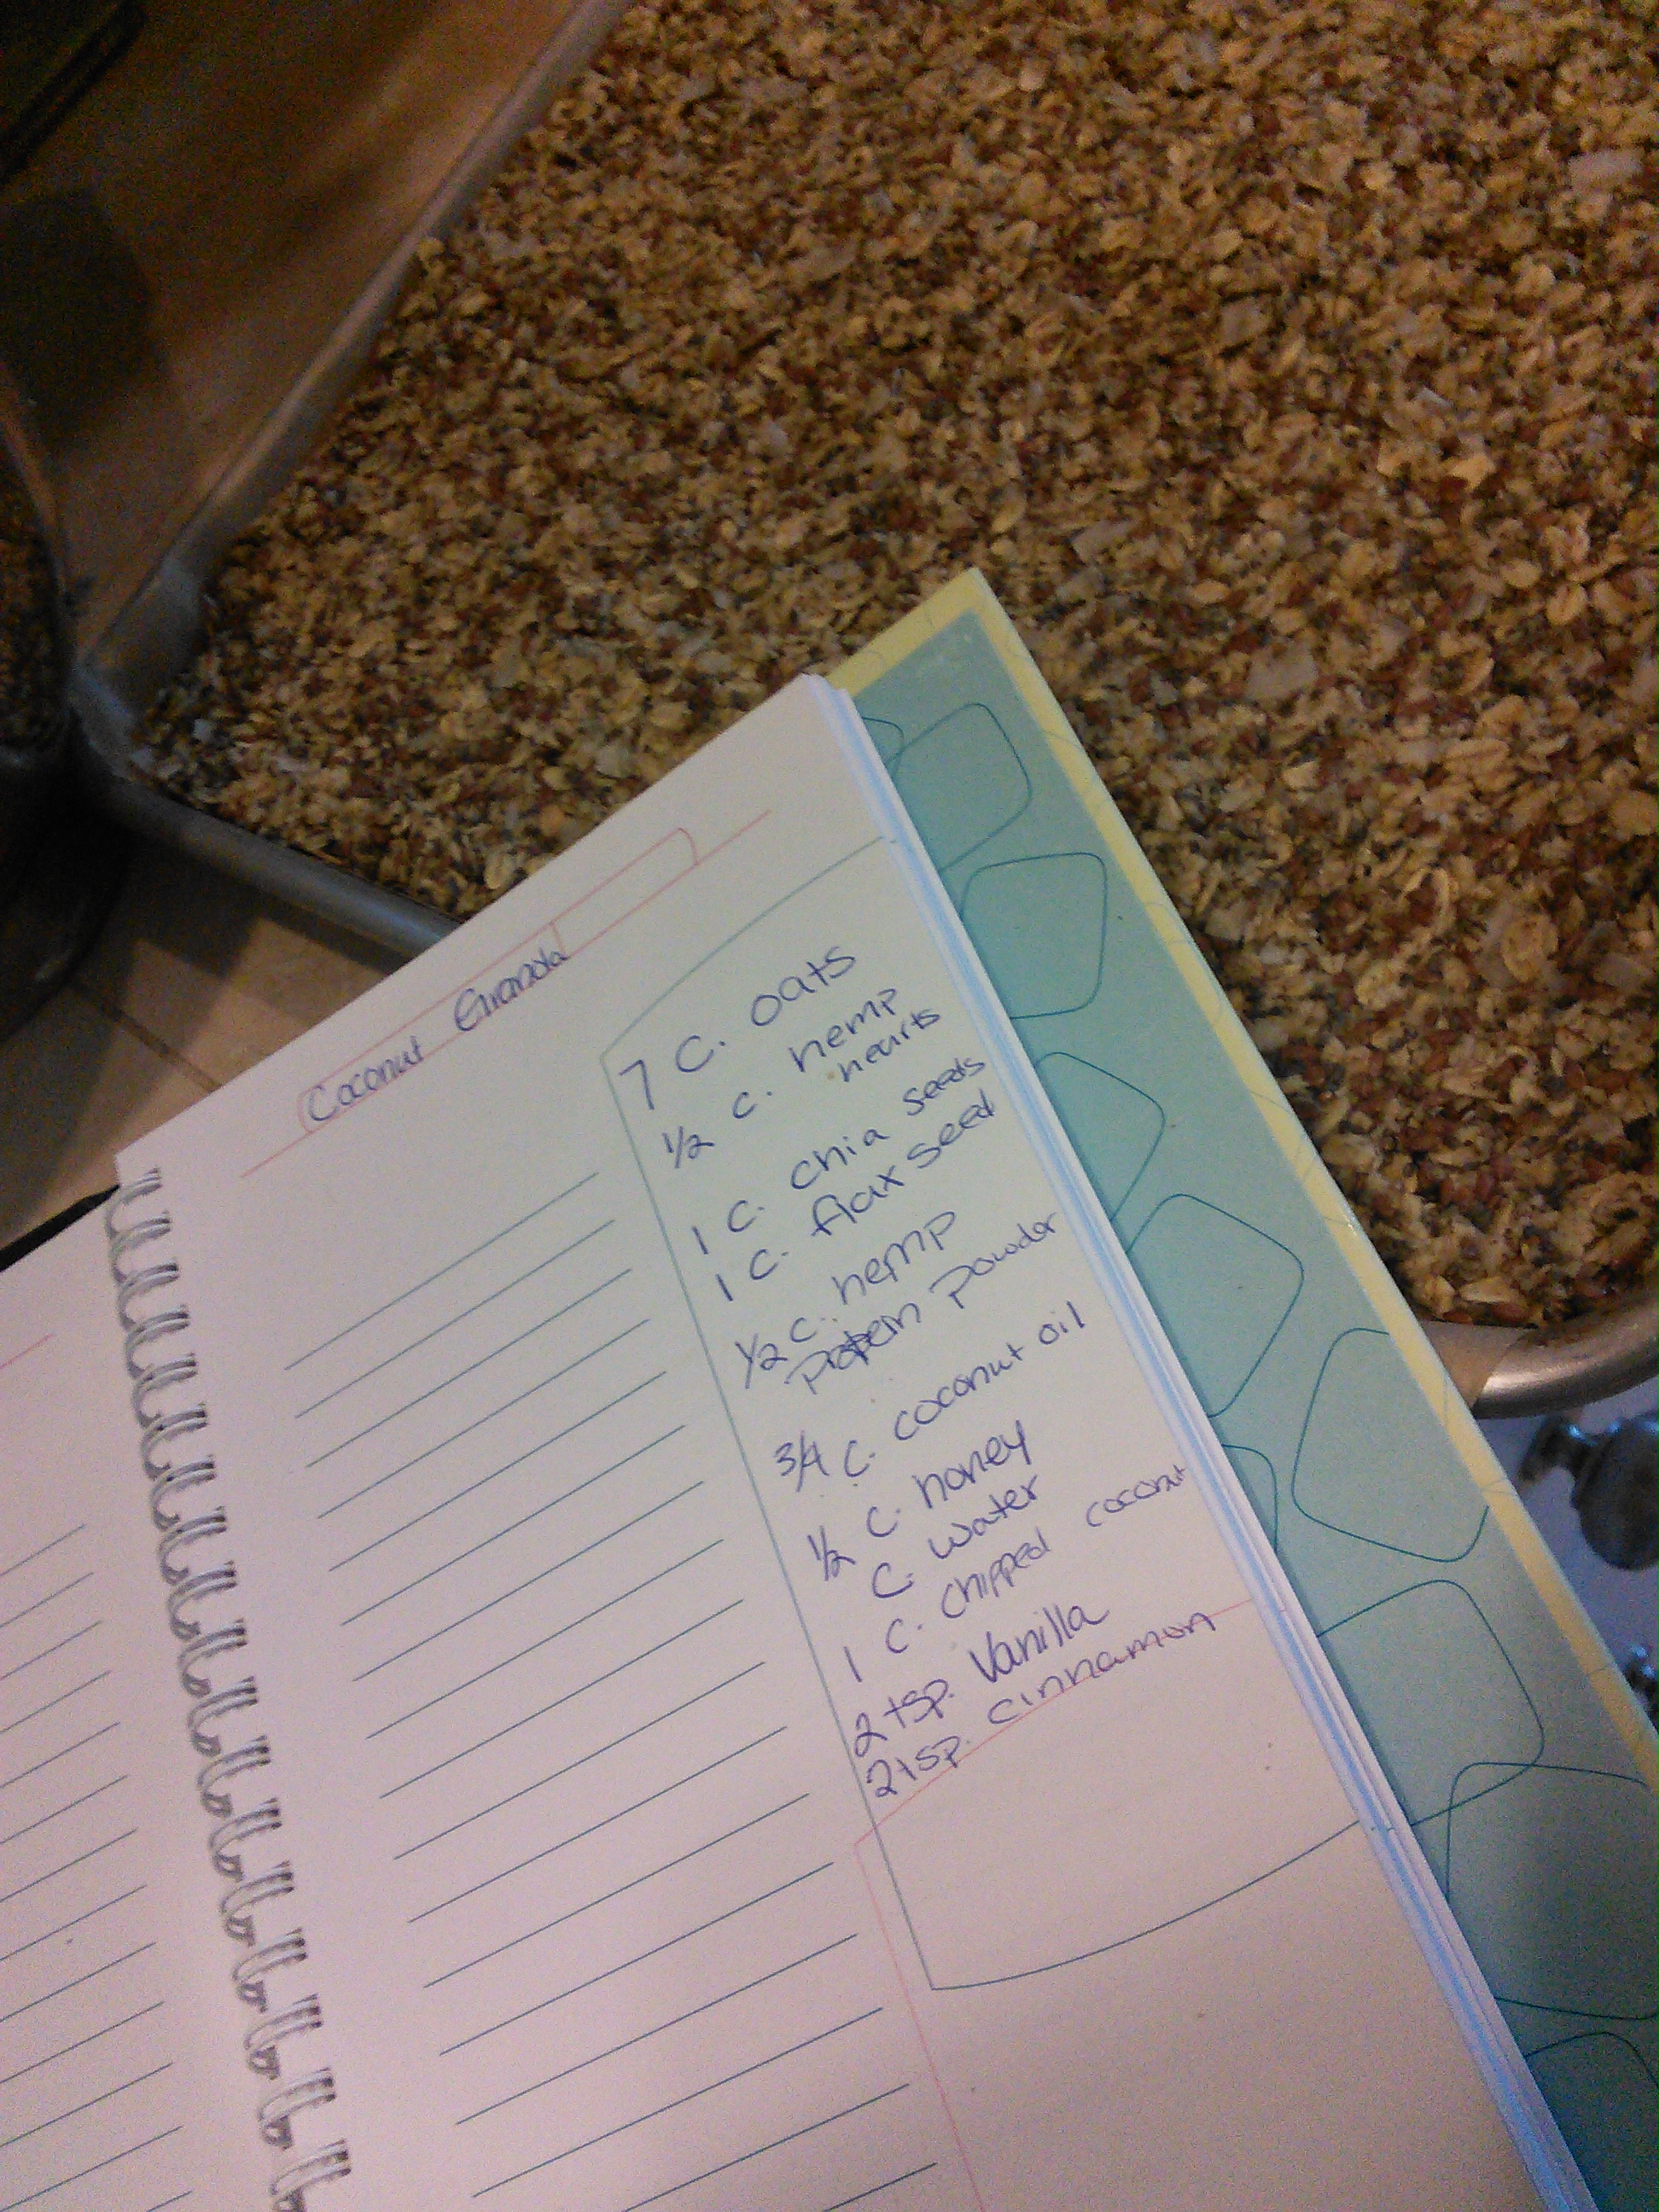 Coconut Granola
7 C. oats
1/2 C. hemp
hearts
1 C. chia seeds
1 C. flax seed
1/2 C. hemp
Protein Powder
3/4 C. coconut oil
1/2 C. honey
C. water
1 C. chipped coconut
2 tsp. Vanilla
2 tsp. cinnamon